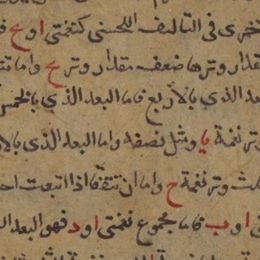 تخرى فى التاليف اللحنى كنغمتى ا و ح
مقدار وترها ضعف مقدار وتر ح واما
البعد الذى بالاربع فاما البعد الذى بالخمس
وتر نغمة يا ومثل نصفه واما البعد الذى بالا
ثلث وتر نغمة ح واما ان تتفقا اذا اتبعت احد
ا و ب فاما مجموع نغمتى ا و د فهو البعد ال